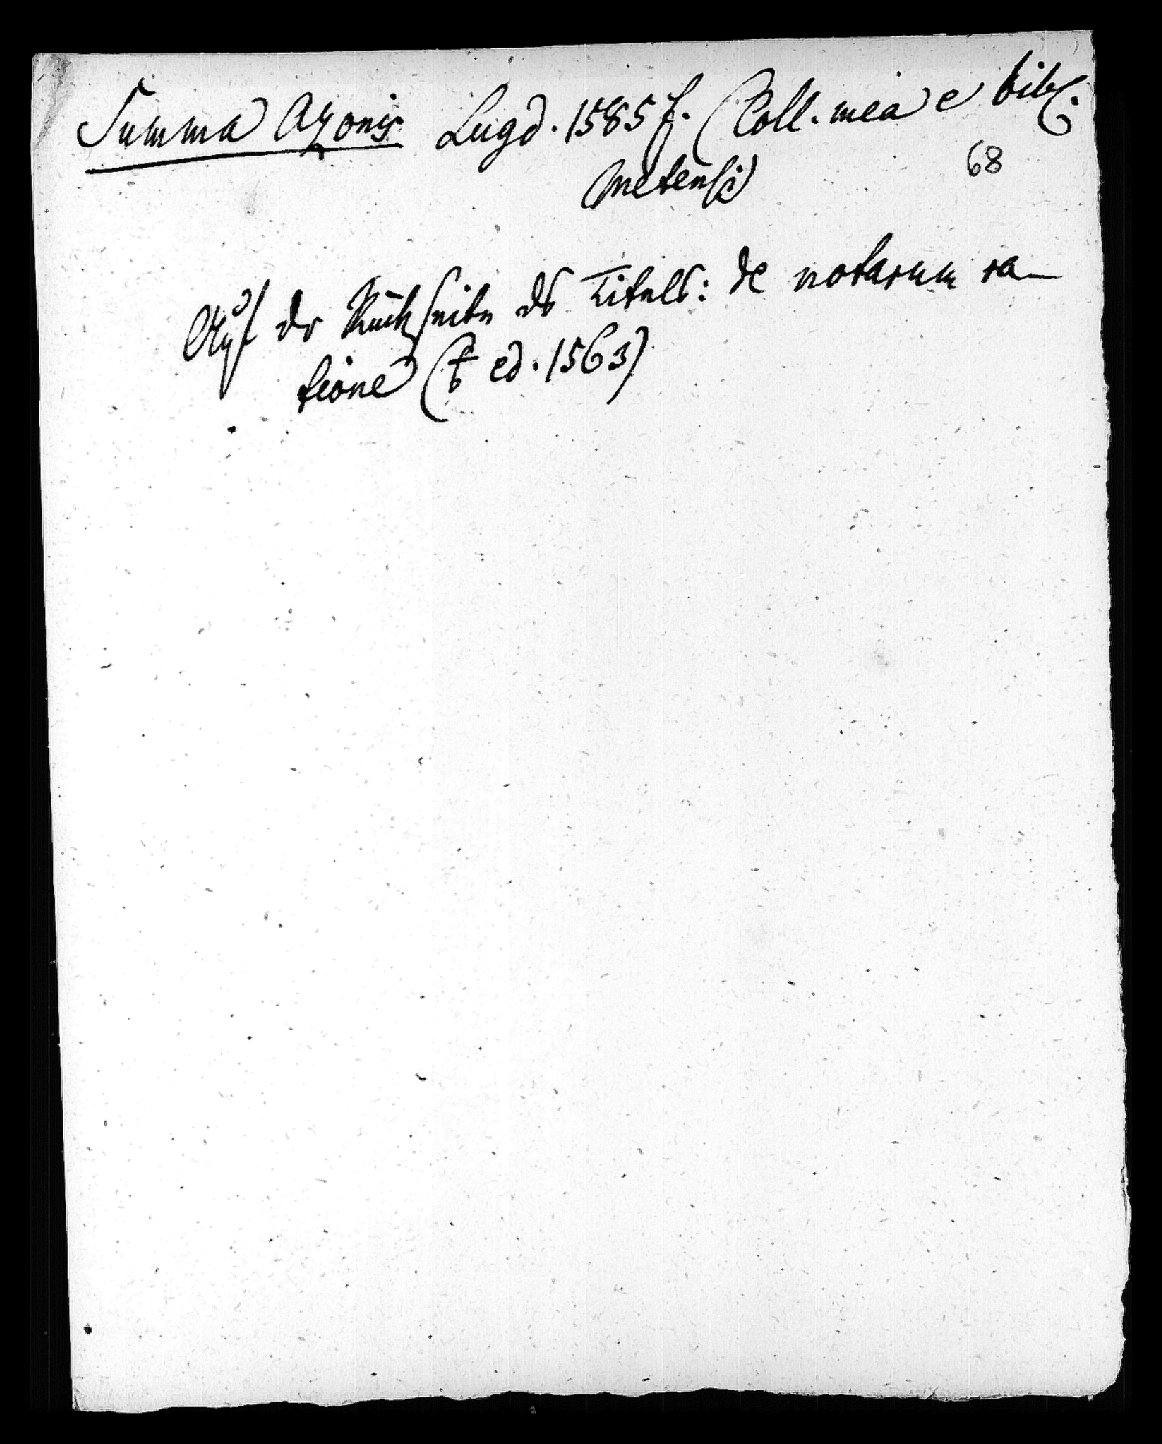 Summa Azonis Lugd. 1585 f. (Coll. mea e bibl.
Metensi)
68
Auf der Rückseite des Titels: de notarum ra-
tione ( ed. 1563)